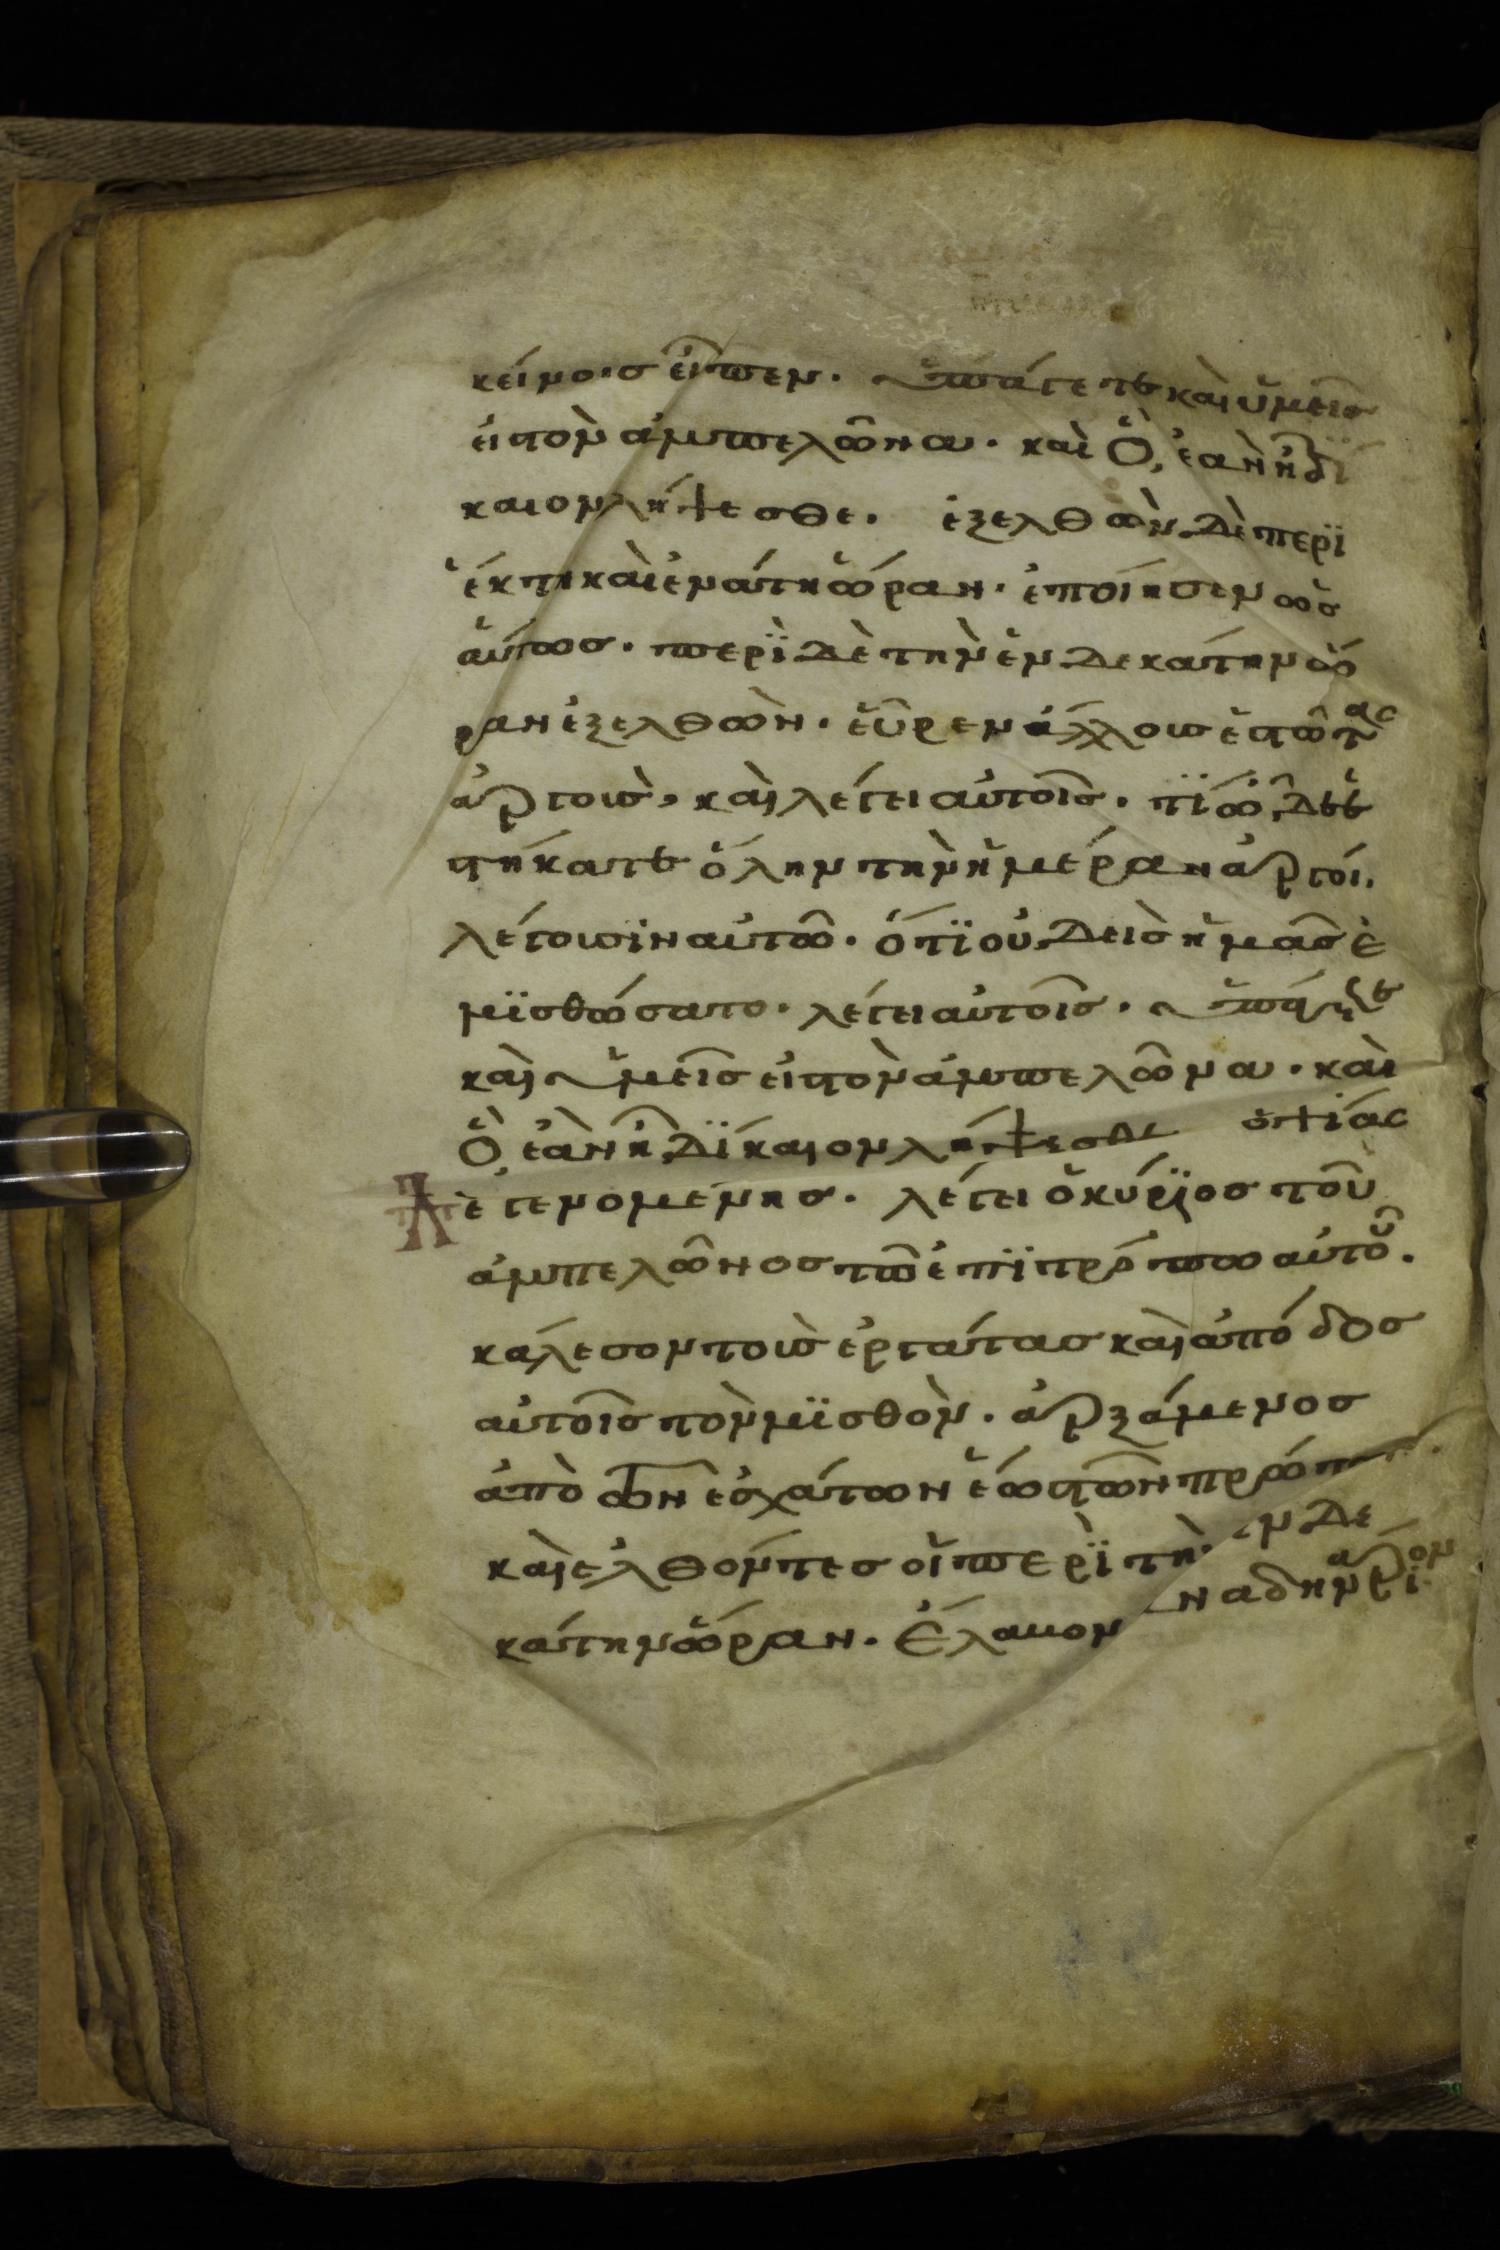 κείνοις εἶπεν. ὑπάγετε καὶ ὑμεῖς
εἰς τὸν ἀμπελῶνα. καὶ ὃ, ἐὰν ἦ δί
καιον λήψεσθε. ἐξελθὼν δὲ περϊ
ἕκτην καὶ ἐνάτην ὥραν. ἐποίησεν ὡσ
αύτως. περῒ δὲ τὴν ἑνδεκάτην ὥ
ραν ἐξελθὼν. εὗρεν ἄλλους ἑστῶτας
ἀργοὺς, καὶ λέγει αὐτοῖς. τί ὧδε ἑ
στήκατε ὅλην τὴν ἡμέραν ἀργοί.
λέγουσϊν αὐτῶ. ὅτϊ οὐδεὶς ἡμᾶς ἐ
μϊσθώσατο. λέγει αὐτοῖς. ὑπάγετε
καὶ ὑμεῖς εἰς τὸν ἀμπελῶνα. καὶ
ὃ ἐὰν ἦ δίκαιον λήψεσθε ὀψίας
δὲ γενομένης. λέγει ὁ κύρϊος τοῦ
ἀμπελῶνος τῶ ἐπϊτρόπω αὐτοῦ.
κάλεσον τοὺς ἐργάτας καὶ ἀπόδος
αὐτοῖς τὸν μϊσθὸν. ἀρξάμενος
ἀπὸ τῶν ἐσχάτων ἕως τῶν πρώτων.
καὶ ἐλθόντες οἱ περῒ τὴν ἑνδε
κάτην ὥραν. ἔλαβον ἀνὰ δηνάρϊον